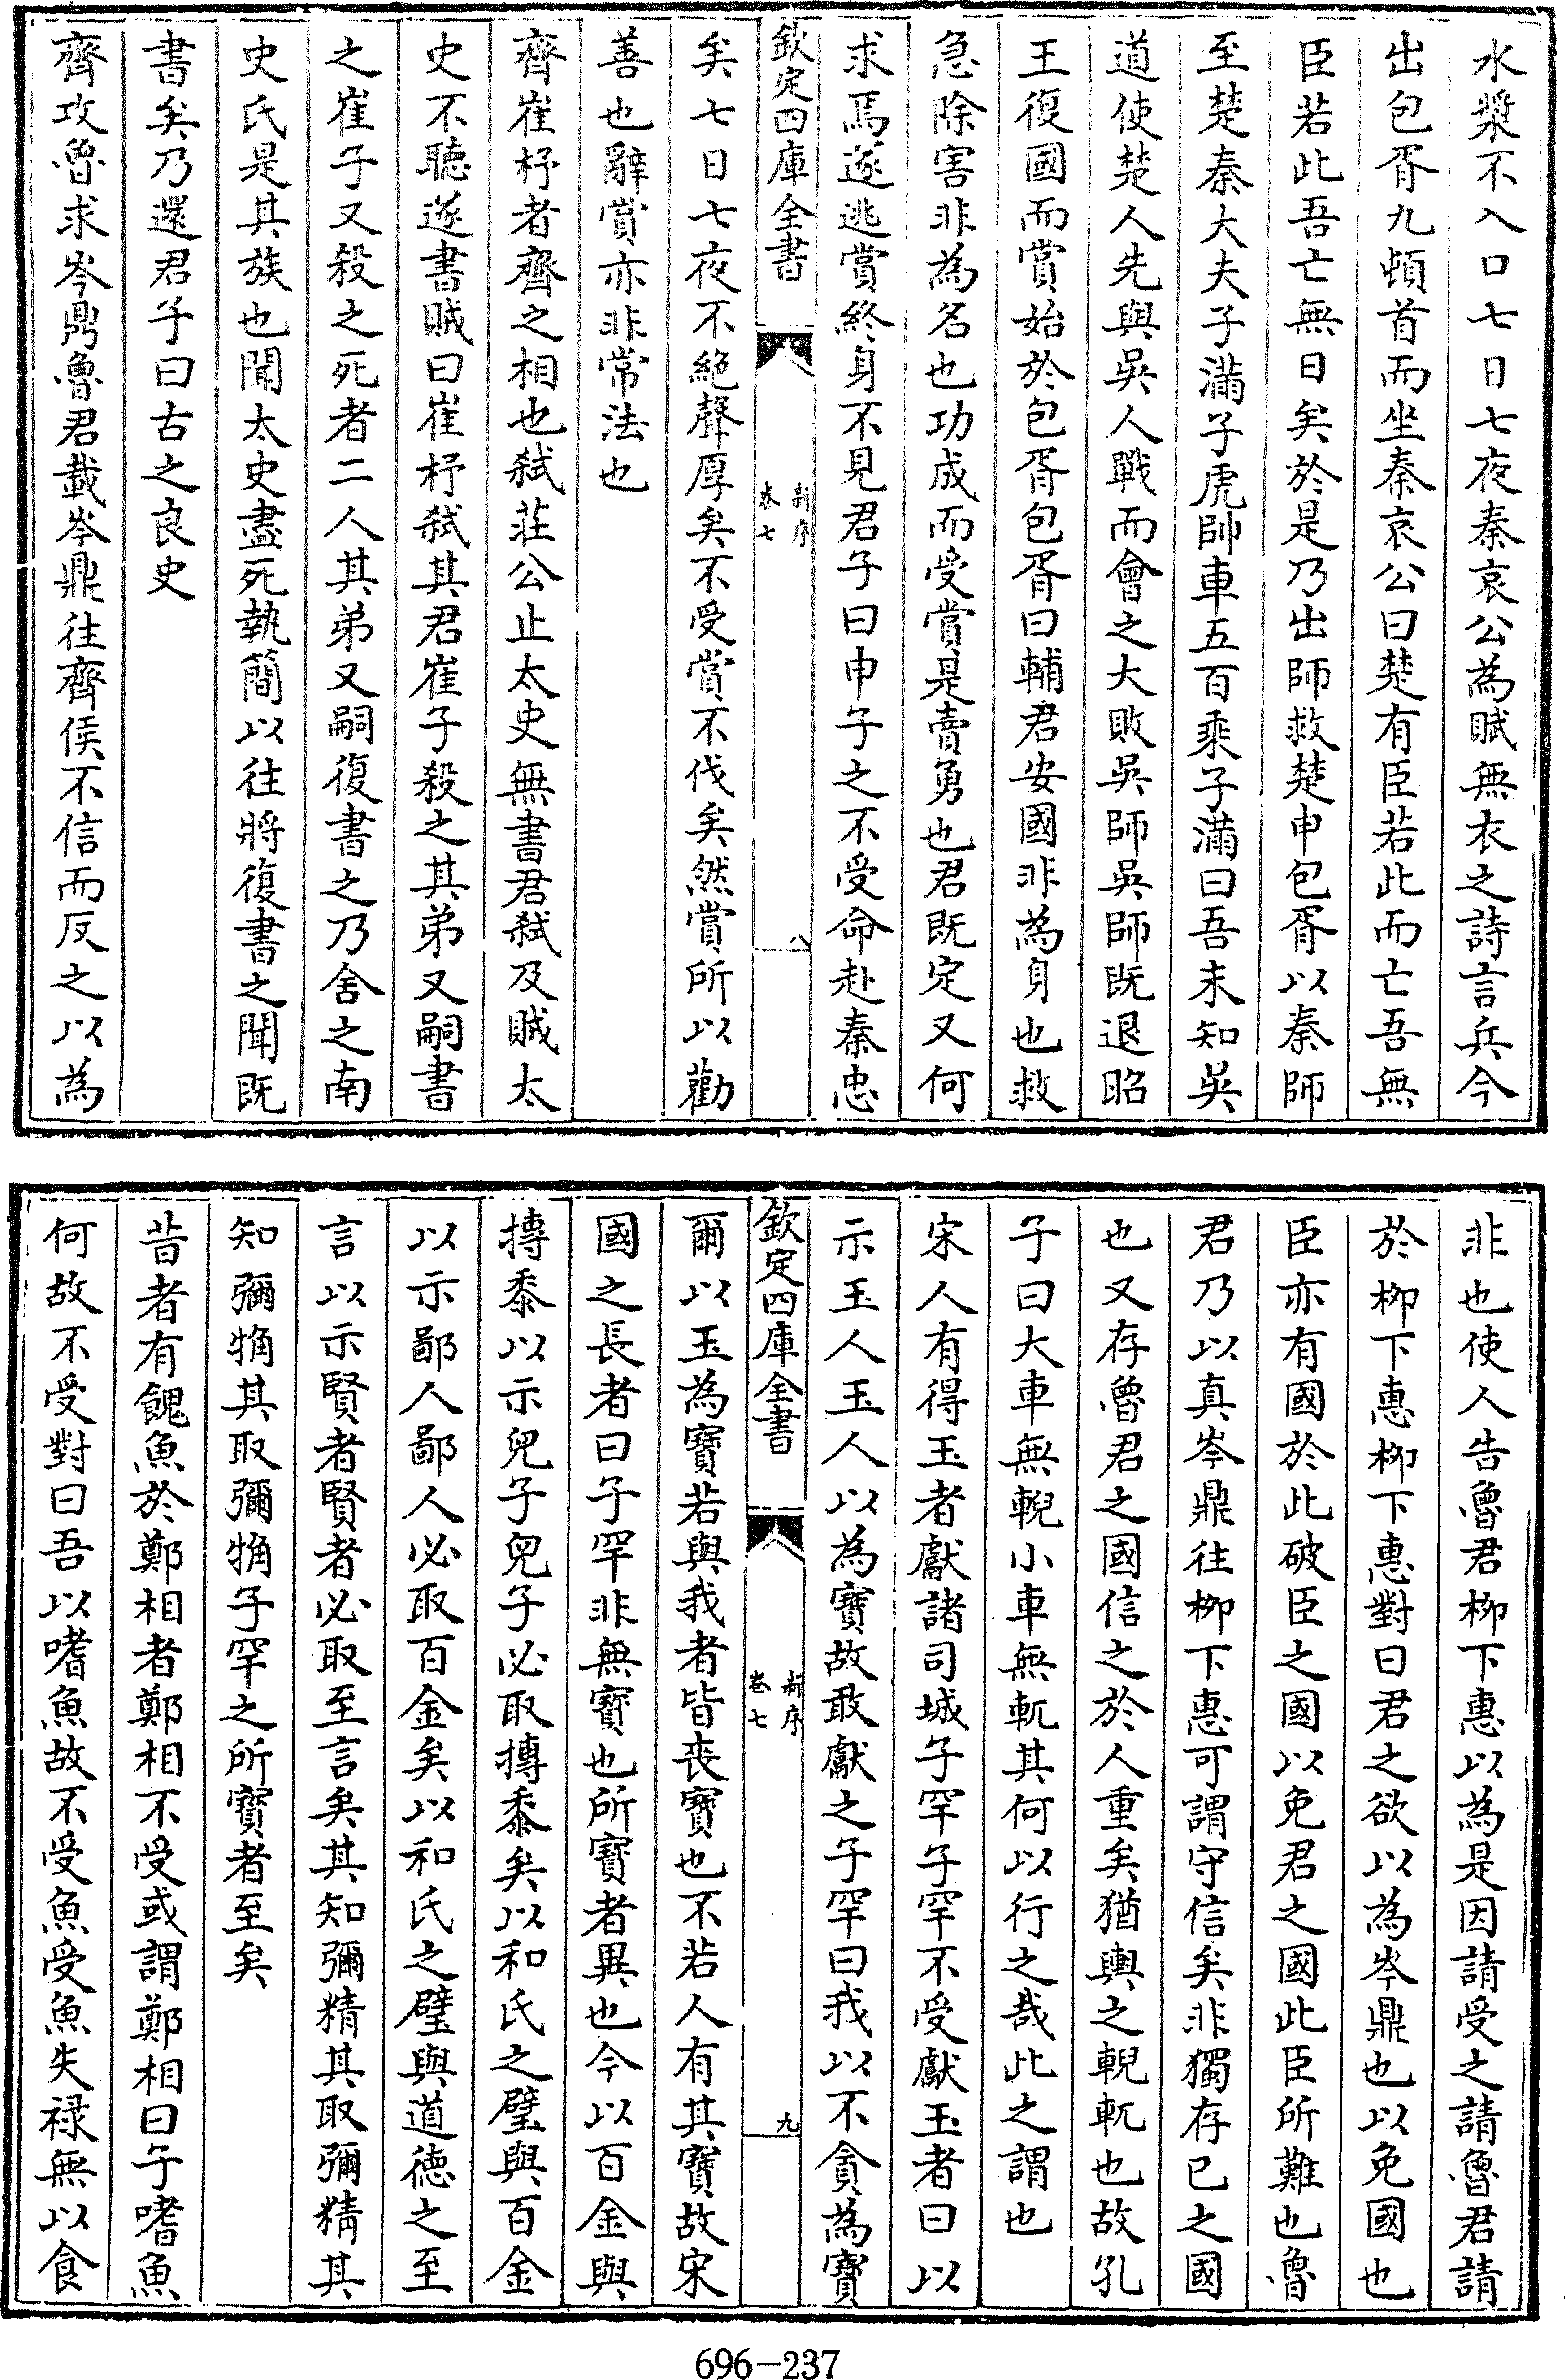 水漿不入口七日七夜秦哀公為賦無衣之詩言兵今
出包胥九頓首而坐秦哀公曰楚有臣若此而亡吾無
臣若此吾亡無日矣於是乃出師救楚申包胥以秦師
至楚秦大夫子滿子虎帥車五百乘子滿曰吾未知吳
道使楚人先與吳人戰而會之大敗吳師吳師既退昭
王復國而賞始於包胥包胥曰輔君安國非為身也救
急除害非為名也功成而受賞是賣勇也君既定又何
求焉遂逃賞終身不見君子曰申子之不受命赴秦忠
欽定四庫全書
新序
卷七
八
矣七日七夜不絕聲厚矣不受賞不伐矣然賞所以勸
善也辭賞亦非常法也
齊崔杼者齊之相也弒莊公止太史無書君弒及賊太
史不聽遂書賊曰崔杼弒其君崔子殺之其弟又嗣書
之崔子又殺之死者二人其弟又嗣復書之乃舍之南
史氏是其族也聞太史盡死執簡以往將復書之聞既
書矣乃還君子曰古之良史
齊攻魯求岑鼎魯君載岑鼎往齊侯不信而反之以為
非也使人告魯君柳下惠以為是因請受之請魯君請
於柳下惠柳下惠對曰君之欲以為岑鼎也以免國也
臣亦有國於此破臣之國以免君之國此臣所難也魯
君乃以真岑鼎往柳下惠可謂守信矣非獨存已之國
也又存魯君之國信之於人重矣猶輿之輗軏也故孔
子曰大車無輗小車無軏其何以行之哉此之謂也
宋人有得玉者獻諸司城子罕子罕不受獻玉者曰以
示玉人玉人以為寶故敢獻之子罕曰我以不貪為寶
欽定四庫全書
新序
卷七
九
爾以玉為寶若與我者皆喪寶也不若人有其寶故宋
國之長者曰子罕非無寶也所寶者異也今以百金與
摶黍以示兒子兒子必取摶黍矣以和氏之璧與百金
以示鄙人鄙人必取百金矣以和氏之璧與道德之至
言以示賢者賢者必取至言矣其知彌精其取彌精其
知彌觕其取彌觕子罕之所寶者至矣
昔者有餽魚於鄭相者鄭相不受或謂鄭相曰子嗜魚
何故不受對曰吾以嗜魚故不受魚受魚失祿無以食
696-237